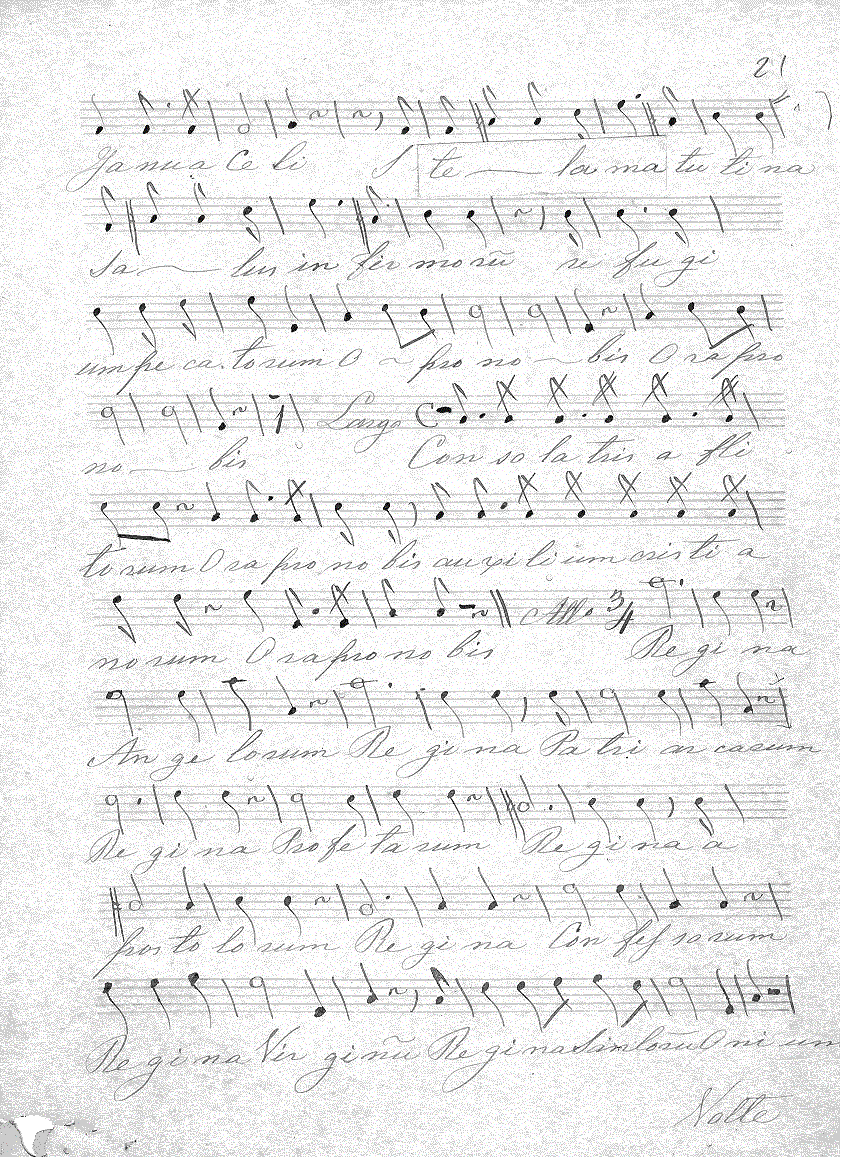 21
Janua Celi S te la ma tu ti na
Sa lus in fir morũ re fu gi
um pe ca. torum O pro no bis O ra pro
no bis Largo C Con so la tris a fli
to rum O ra pro no bis au xi li um cris ti a
no rum O ra pro no bis All.o 3/4 Re gi na
An ge lorum Re gi na Pa tri ar carum
Re gi na Pro fe ta rum Re gi na a
pos to lo rum Re gi na Con fes so rum
Re gi na Vir ginũ Re gi na Sin lorũ O ni um
Volte